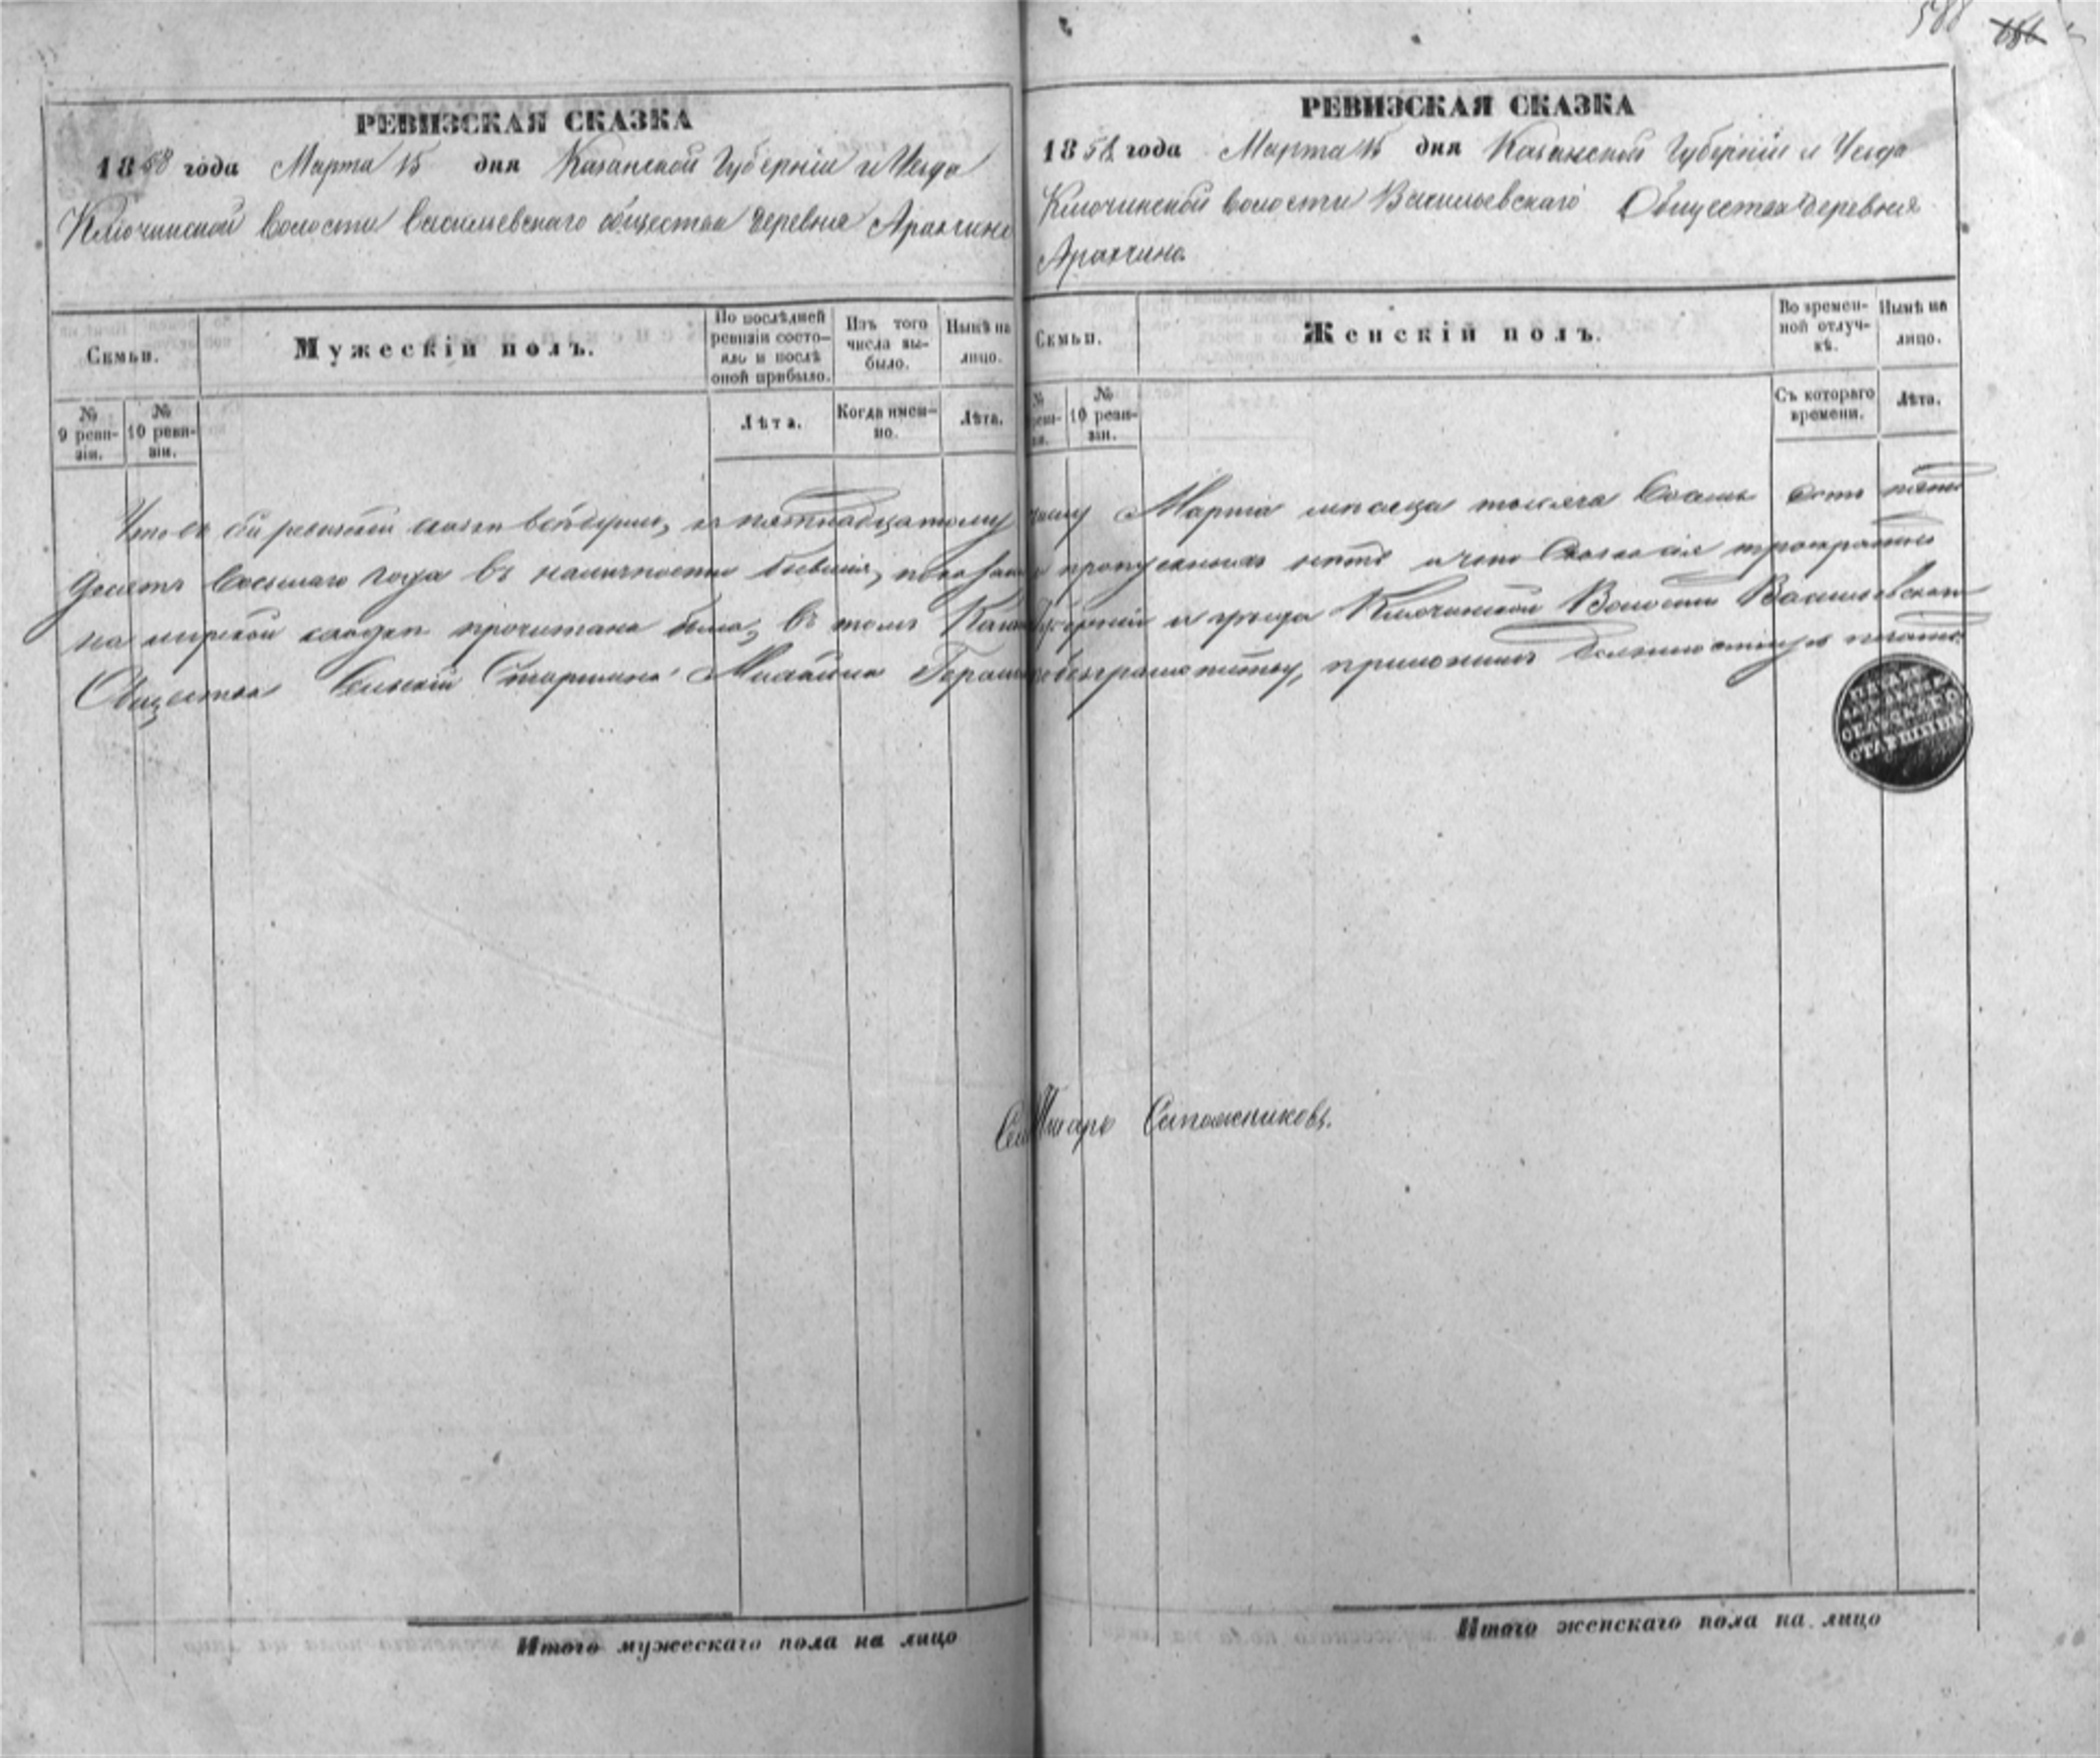 588
РЕВИЗСКАЯ СКАЗКА
1858 года Марта 15 дня Казанской Губерніи и Уезда
Ключинской волости Васильевскаго общества деревня Арахчино
Семьи.
Мужескій полъ.
По послѣдней ревизіи состояло и послѣ оной прибыло.
Изъ того числа выбыло.
Нынѣ на лицо.
№ 9 ревизіи.
№ 10 ревизіи.
Лѣта.
Когда именно.
Лѣта.
РЕВИЗСКАЯ СКАЗКА
1858 года Марта 15 дня Казанской Губерніи и Уезда
Ключинской волости Васильевскаго Общества деревня
Арахчино
Семьи.
Женскій полъ.
Во временной отлучкѣ.
Нынѣ на лицо.
№ 10 ревизіи.
Съ котораго времени.
Лѣта.
Что въ сей ревизской сказки все душы, къ пятнадцатому числу Марта месяца тысяча восемь сотъ пять
десятъ восьмаго года въ наличности бывшія, показаны пропускных нетъ и что сказка сія троекратно
на мирской сходки прочитана была, въ томъ Губерніи и уезда Ключинской Волости Васильевскаго
Общества Сельскій Старшина безграмотный, приложилъ должностную печать.
СЕЛЬСКАГО
СТАРШИНЫ
Писарь Сапожниковъ.
Итого мужескаго пола на лицо
Итого женскаго пола на лицо